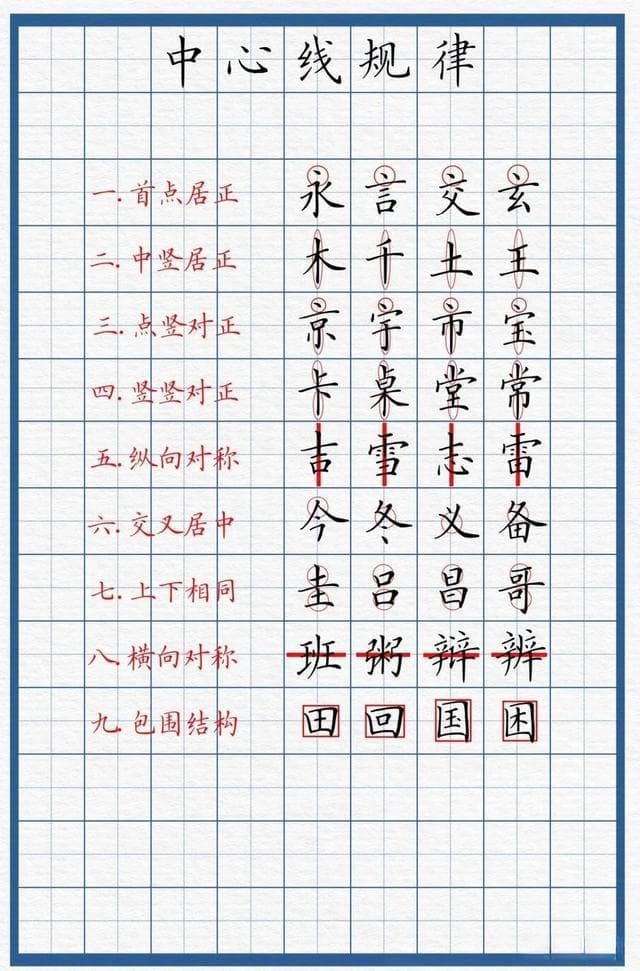 中心线规律
一.首点居正 永 言 交 玄
二.中竖居正 木 千 土 王
三.点竖对正 京 宇 市 宝
四.竖竖对正 卡 桌 堂 常
五.纵向对称 吉 雪 志 雷
六.交叉居中 今 冬 义 备
七.上下相同 圭 吕 昌 哥
八.横向对称 班 粥 辩 辨
九.包围结构 田 回 国 困